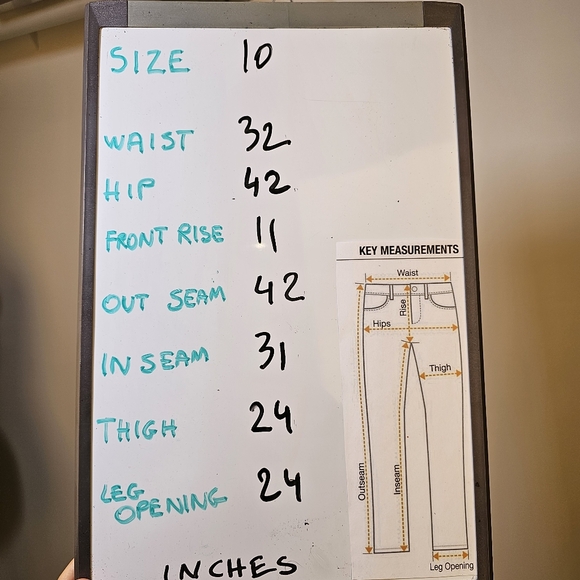 SIZE 10
WAIST 32
HIP 42
FRONT RISE 11
OUT SEAM 42
IN SEAM 31
THIGH 24
LEG
OPENING 24
INCHES
KEY MEASUREMENTS
Waist
Rise
Hips
Thigh
Outseam
Inseam
Leg Opening